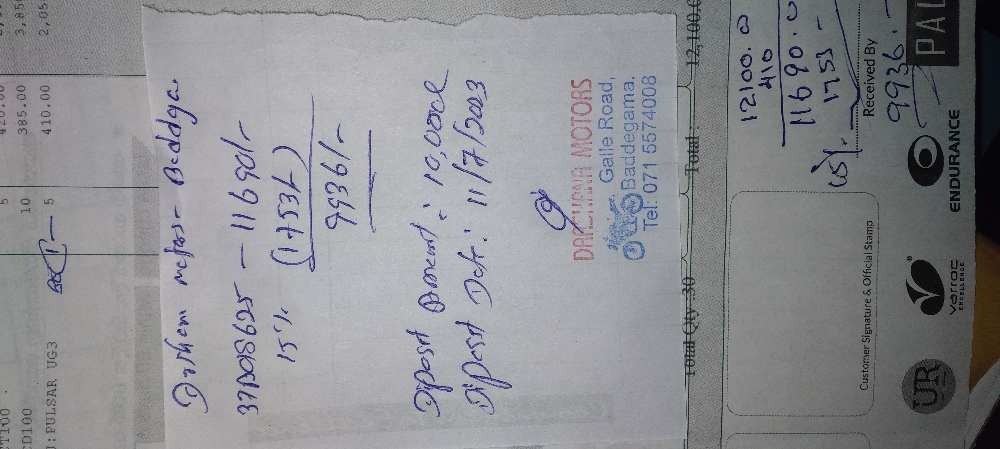 420.00
5
10 385.00 3,850
5 410.00 2,05
CT100
CD100
J:PULSAR UG3
Motors - Baddga
37P018625 - 11690/-
15%
(1753/-)
9936/-
Diposit Amount : 10,000
Diposit Date : 11/7/2023
MOTORS
Galle Road,
Baddegama.
Tel: 071 5574008
Total Qty :30 Total : 12,100.0
12100.0
410
11690.0
15%. 1753 -
9936.-
Received By
Customer Signature & Official Stamp
UR
varroc
EXCELLENCE
ENDURANCE
PAL